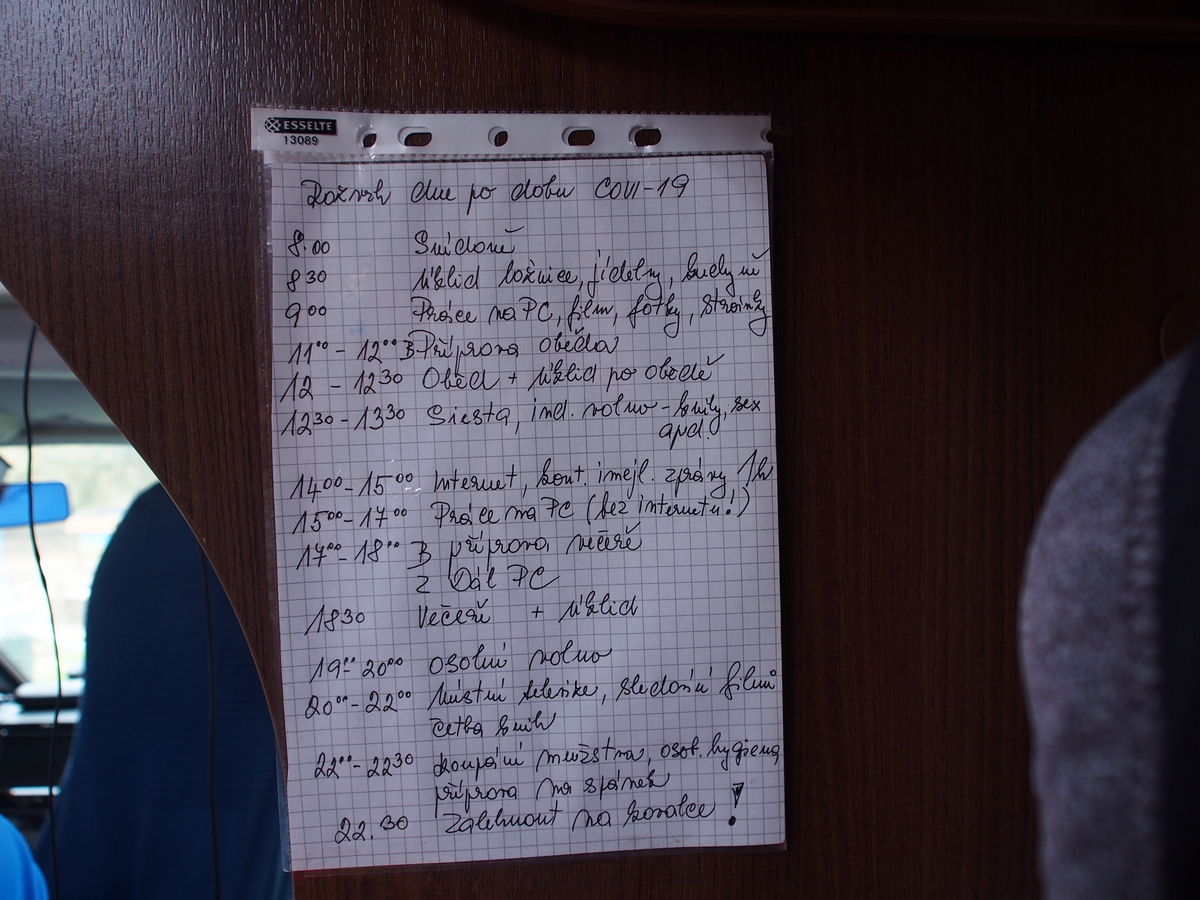 ESSELTE
13089
Rozvrh dne po dobu COVI-19
8.00 Snídaně
8 30 Úklid ložnice, jídelny, kuchyně
9 00 Práce na PC, film, fotky, stránky
11 00 - 12 00 B Příprava oběda
12 - 12 30 Oběd + úklid po obědě
12 30 - 13 30 Siesta, ind. volno - knihy, sex
apd.
14 00 - 15 00 Internet, kont. imejl. zprávy 1h
15 00 - 17 00 Práce na PC (bez internetu!)
17 00 - 18 00 B příprava večeře
Z Dál PC
18 30 Večeře + úklid
19 00 - 20 00 osobní volno
20 00 - 22 00 Místní televize, sledování filmů
četba knih
22 00 - 22 30 koupání mužstva, osob. hygiena,
příprava na spánek
22.30 Zalehnout na kavalce !